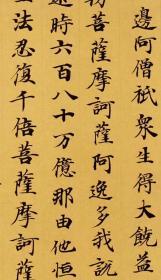 邊阿僧祇衆生得大饒益
勒菩薩摩訶薩阿逸多我說
遠時六百八十万億那由他恒
生法忍復千倍菩薩摩訶薩